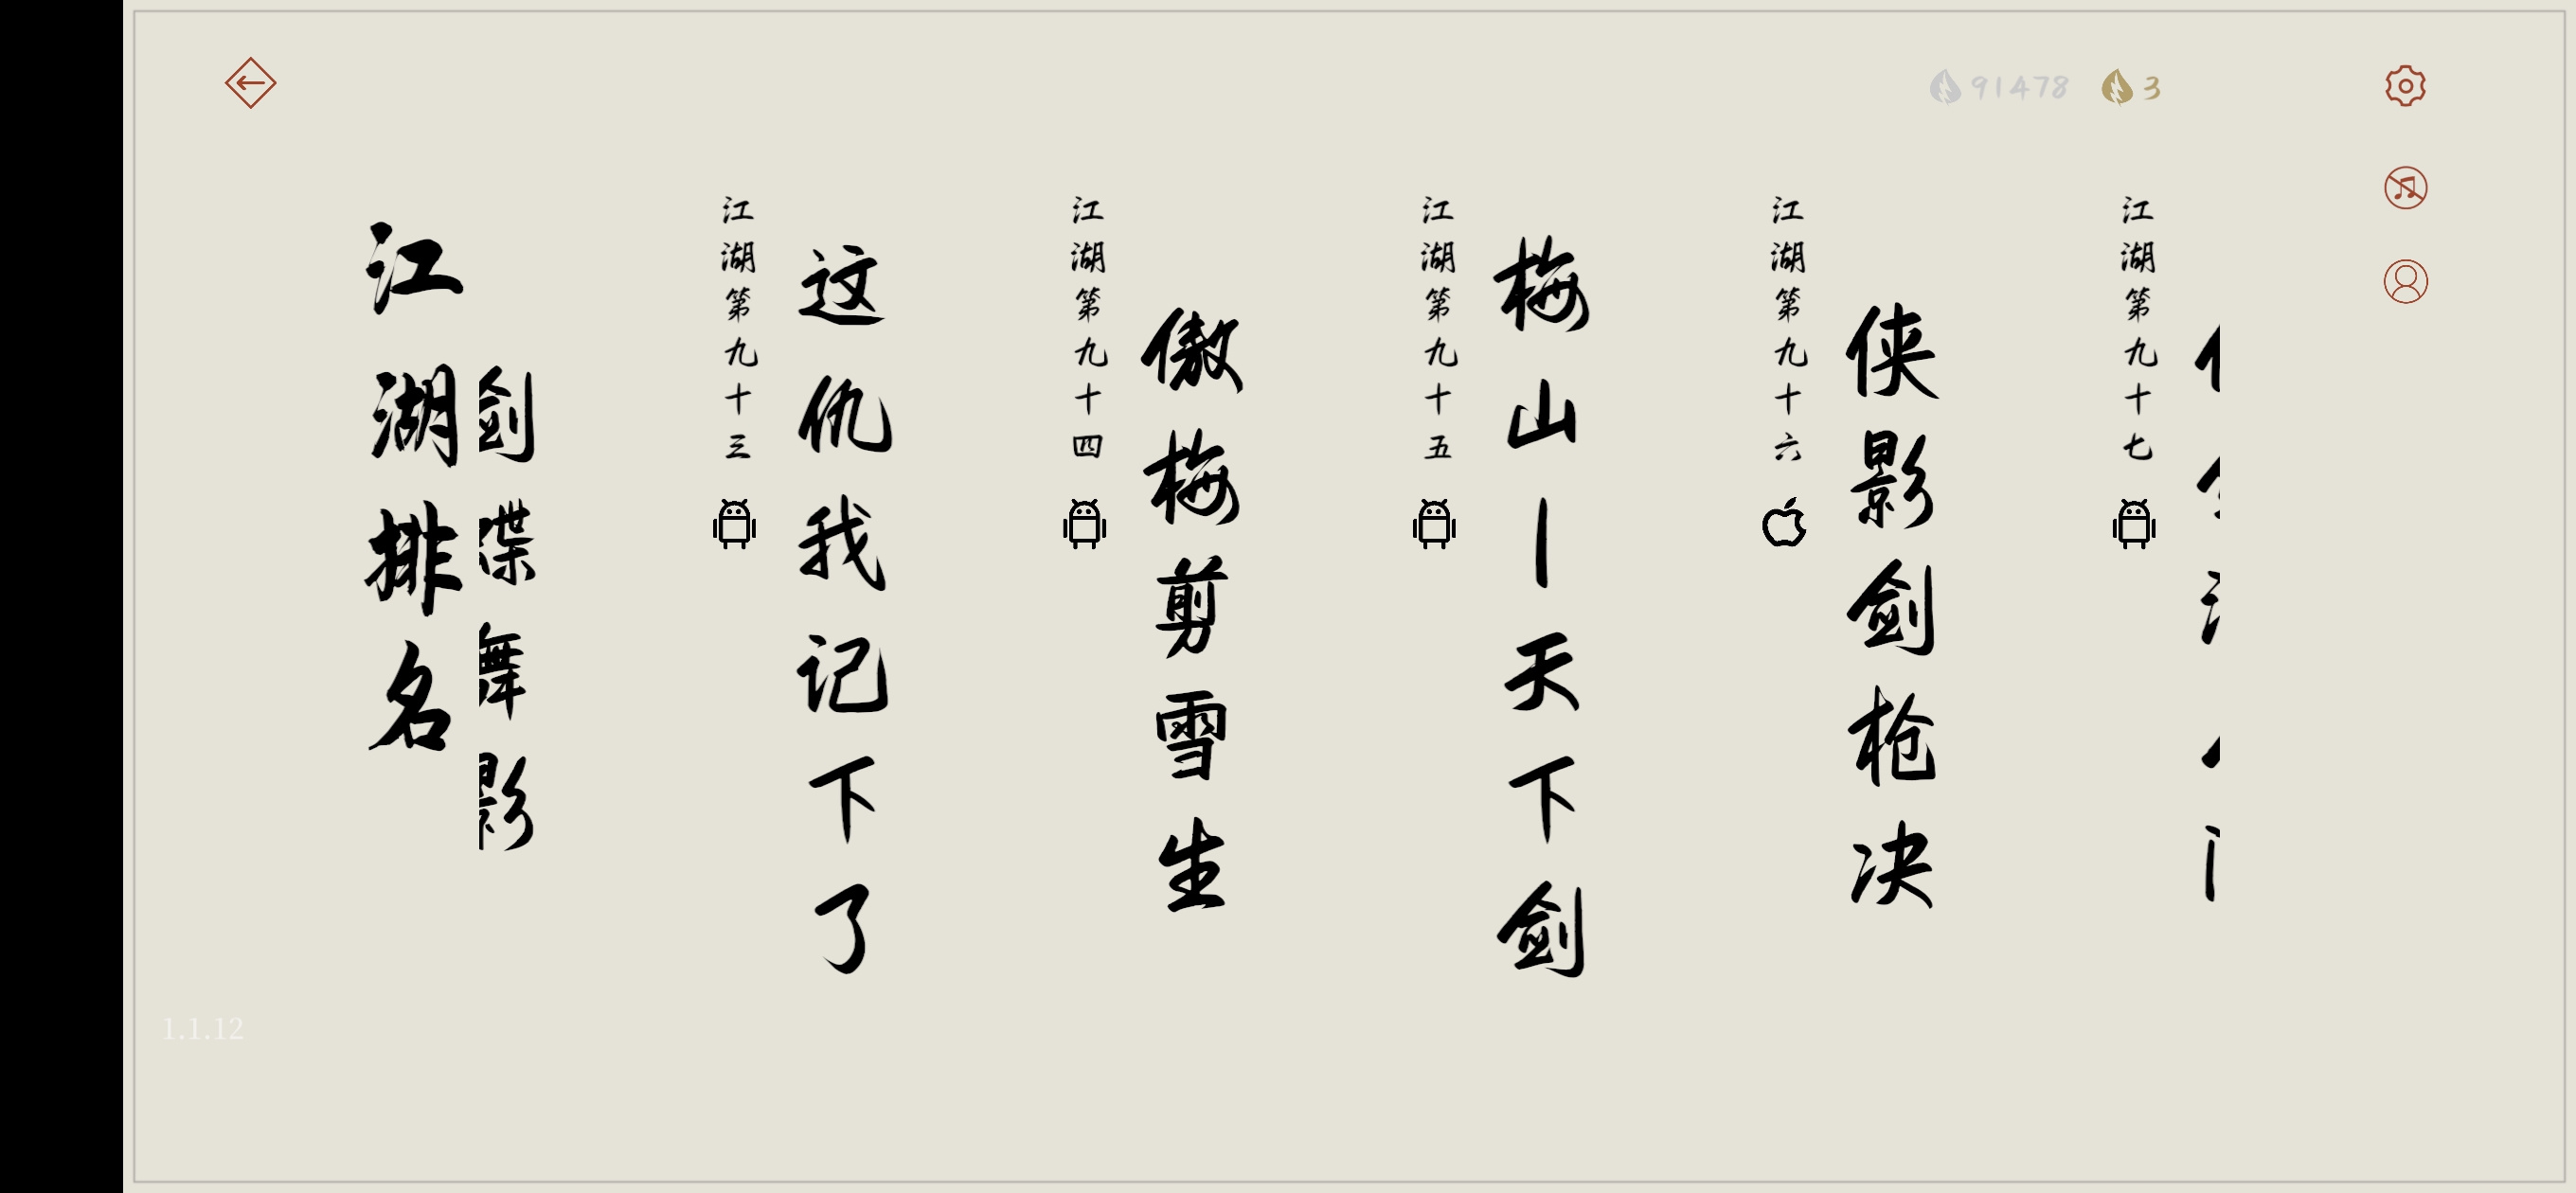 91478
3
江湖排名
剑舞影
江湖第九十三
这仇我记下了
江湖第九十四
傲梅剪雪生
江湖第九十五
梅山丨天下剑
江湖第九十六
侠影剑枪决
江湖第九十七
1.1.12